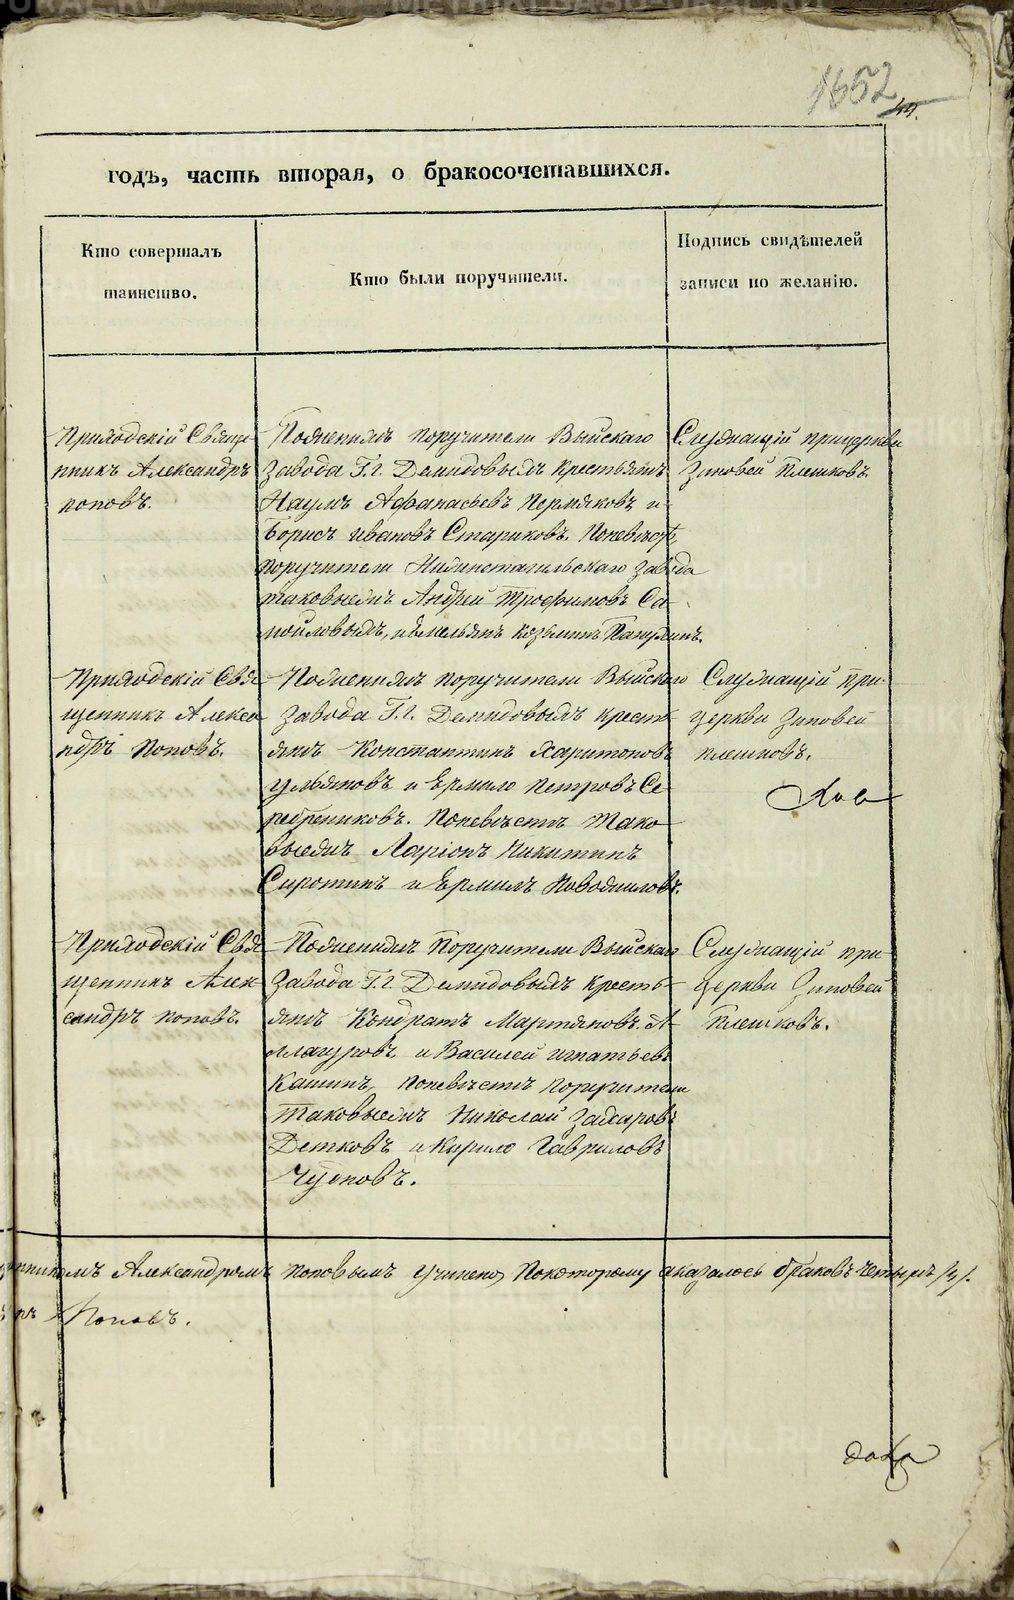 1652
44.
годъ, часть вторая, о бракосочетавшихся.
Кто совершалъ
таинство.
Кто были поручители.
Подпись свидѣтелей
записи по желанію.
Приходскій Свяще
нникъ Александръ
поповъ.
Пожениxѣ поручители Выйскаго
завода Г.г. Демидовыхъ крестьянѣ
Наумъ Афанасьевъ Пермяковъ и
Борисъ ивановъ Стариковъ. Поневѣстѣ
поручители Нижнетагильскаго завода
таковыежъ Андрей Трофимовъ Са
мойловыхъ, и Емельянъ козьминъ
Служащій прицеркви
Зиновей Плешковъ
Приходскій Свя
щенникъ Алекса
ндръ Поповъ.
Поженихѣ поручители Выйскаго
завода Г.г. Демидовыхъ кресть
янѣ Константинъ Харитоновъ
ульяновъ и Ермило петровъ Се
ребрениковъ. Поневѣстѣ Тако
выежъ Ларіонъ Никитинъ
Сиротинъ и Ермилъ
Служащій При
церкви Зиновей
плешковъ.
Приходскій Свя
щенникъ Алек
сандръ поповъ.
Поженихѣ Поручители Выйскаго
Завода Г.г. Демидовыхъ Кресть
янѣ Кондратъ Мартяновъ. А
и Василей игнатьевъ
Кашинъ, поневѣстѣ поручители
Таковыежъ Николай Захаровъ
Детковъ и Кирило Гавриловъ
Служащій при
церкви Зиновей
Плешковъ.
нникомъ Александромъ поповымъ учинено, Покоторому оказалось браковъ четыре /4/.
Поповъ.